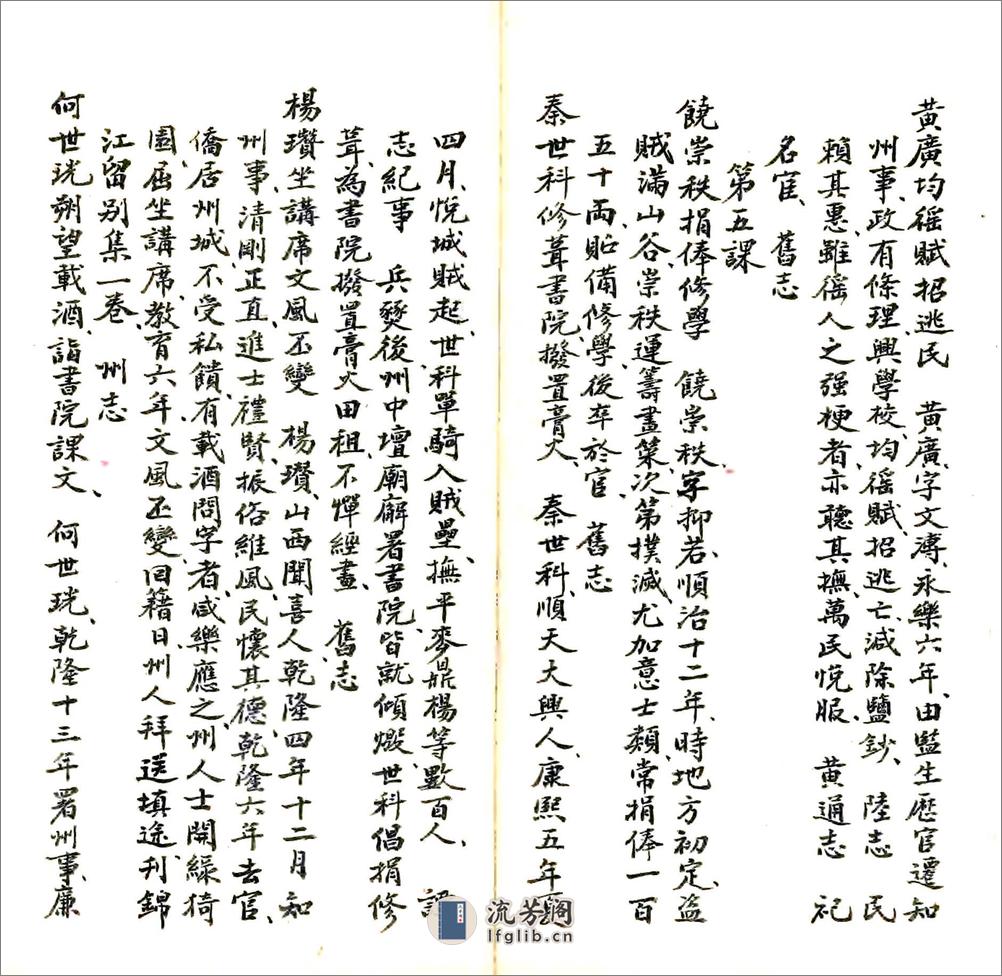 黃廣均徭賦招逃民　黃廣字文溥、永樂六年、由監生歷官遷知
州事、政有條理興學校、均徭賦、招逃亡、減除鹽鈔、　陸志　民
賴其惠、雖徭人之强梗者亦聽其撫、萬民悅服、　黄通志　祀
名宦、舊志
第五課
饒崇秩捐俸修學　饒崇秩、字抑若、順治十二年、時地方初定、盜
賊滿山谷、崇秩運籌畫策、次第撲滅、尤加意士類、常捐俸一百
五十兩、貯備修學、後卒於官　舊志
秦世科修葺書院、撥置膏火、　秦世科、順天大興人、康熙五年
四月、悅城賊起、世科單騎入賊壘、撫平麥鼎楊等數百人、
志紀事　兵燹後、州中壇廟廨署書院、皆就傾燬、世科倡捐修
葺、為書院撥置膏火田租、不憚經畫、　舊志
楊瓚坐講席文風丕變　楊瓚、山西聞喜人、乾隆四年十二月知
州事、清剛正直、進士禮賢、振俗維風、民懷其德、乾隆六年去官、
僑居州城、不受私饋、有載酒問字者、咸樂應之、州人士開綠猗
園、屈坐講席、教育六年、文風丕變、囘籍日、州人拜送填途、刋錦
江留別集一卷　州志
何世珖朔望載酒、詣書院課文、　何世珖、乾隆十三年署州事、廉
流芳閣
lfglib.cn